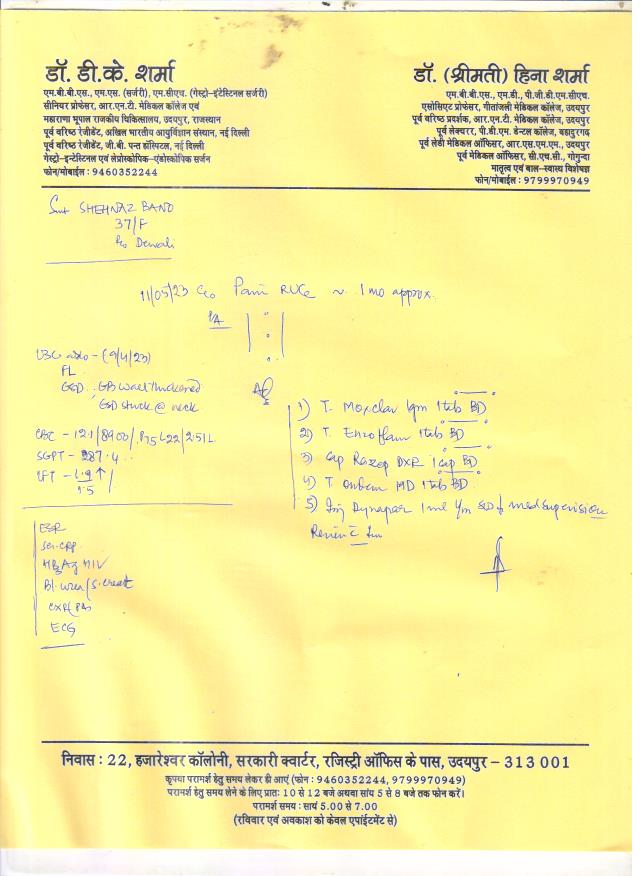 डॉ. डी.के. शर्मा
एम.बी.बी.एस., एम.एस. (सर्जरी), एम.सी.एच. (गेस्ट्रो-इंटेस्टिनल सर्जरी)
सीनियर प्रोफेसर, आर.एन.टी. मेडिकल कॉलेज एवं
महाराणा भूपाल राजकीय चिकित्सालय, उदयपुर, राजस्थान
पूर्व वरिष्ठ रेजीडेंट, अखिल भारतीय आयुर्विज्ञान संस्थान, नई दिल्ली
पूर्व वरिष्ठ रेजीडेंट, जी.बी. पन्त हॉस्पिटल, नई दिल्ली
गेस्ट्रो-इन्टेस्टिनल एवं लेप्रोस्कोपिक-एंडोस्कोपिक सर्जन
फोन/मोबाईल : 9460352244
डॉ. (श्रीमती) हिना शर्मा
एम.बी.बी.एस., एम.डी., पी.जी.डी.एम.सी.एच.
एसोसिएट प्रोफेसर, गीतांजली मेडिकल कॉलेज, उदयपुर
पूर्व वरिष्ठ प्रदर्शक, आर.एन.टी. मेडिकल कॉलेज, उदयपुर
पूर्व लेक्चरर, पी.डी.एम. डेन्टल कॉलेज, बहादुरगढ़
पूर्व लेडी मेडिकल ऑफिसर, आर.एस.एम.एम., उदयपुर
पूर्व मेडिकल ऑफिसर, सी.एच.सी., गोगुन्दा
मातृत्व एवं बाल-स्वास्थ्य विशेषज्ञ
फोन/मोबाईल : 9799970949
Smt SHEHNAZ BANO
37/F
R/o Dewali
11/05/23 C/o Pain RUQ ~ 1 mo approx.
P/A
USG abdo - (9/4/23)
FL
GSD, GB wall thickened
GSD stuck @ neck
CBC - 12.1/8900/P75 L22/2.51L
SGPT - 287.4
LFT - 1.9↑
1.5
ESR
Ser. CRP
HBsAg HIV
Bl. urea/S. creat
CXR(PA)
ECG
Adv
1) T. Moxclav 1gm 1tab BD
2) T. Enzoflam 1tab BD
3) Cap Razop DXR 1cap BD
4) T. MD 1tab BD
5) Inj Dynapar 1ml I/m med supervision
Review
निवास : 22, हजारेश्वर कॉलोनी, सरकारी क्वार्टर, रजिस्ट्री ऑफिस के पास, उदयपुर - 313 001
कृपया परामर्श हेतु समय लेकर ही आएं (फोन : 9460352244, 9799970949)
परामर्श हेतु समय लेने के लिए प्रातः 10 से 12 बजे अथवा सांय 5 से 8 बजे तक फोन करें।
परामर्श समय : सायं 5.00 से 7.00
(रविवार एवं अवकाश को केवल एपॉईंटमेंट से)